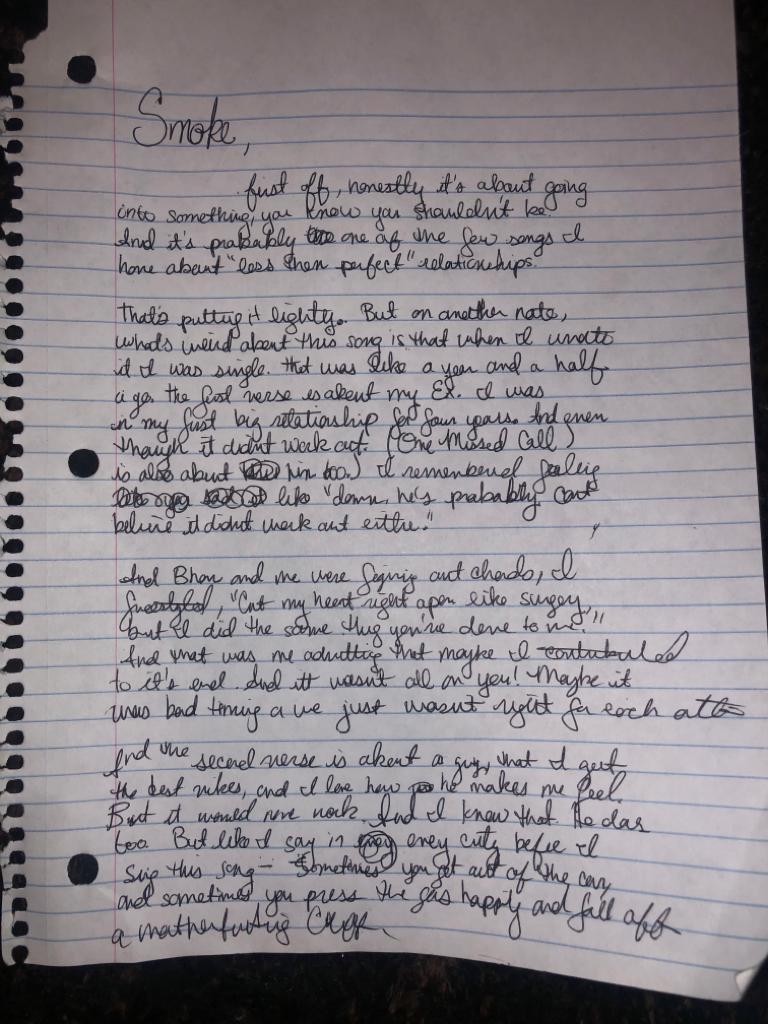 Smoke,
first off, honestly it's about going
into something, you know you shouldn't be.
And it's probably one of the few songs I
have about "less then perfect" relationships.
That's putting it lightly. But on another note,
whats weird about this song is that when I wrote
it I was single. that was like a year and a half
ago the first verse is about my Ex. I was
in my first big relationship for four years. And even
though it didnt work out. (One Missed Call)
is also about him too.) I remembered feeling
like "damn, he's probably cant
believe it didnt work out either."
And Bhav and me were figuring out chords, I
freestyled, "Cut my heart right open like surgery,
but I did the same thing you've done to me."
And that was me admitting that maybe I contributed
to it's end. And it wasn't all on you! Maybe it
was bad timing or we just wasn't right for each other
And the second verse is about a guy, that I get
the best vibes, and I love how he makes me feel.
But it would never work. And I know that He does
too. But like I say in every city before I
sing this song - Sometimes you get out of the car,
and sometimes you press the gas happily and fall off
a motherfucking Cliff.